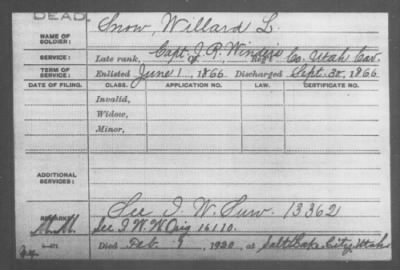 DEAD.
NAME OF SOLDIER: Snow, Willard L.
SERVICE: Capt. J. R. Winder's
Late rank, Co. Utah Cav.
TERM OF SERVICE: Enlisted June 1, 1866. Discharged Sept. 30, 1866
DATE OF FILING. CLASS. APPLICATION NO. LAW. CERTIFICATE NO.
Invalid,
Widow,
Minor,
ADDITIONAL SERVICES:
See I. W. Surv. 13362
REMARKS: See I. W. W. Orig 16110.
Died Feb 9, 1920, at Salt Lake City, Utah